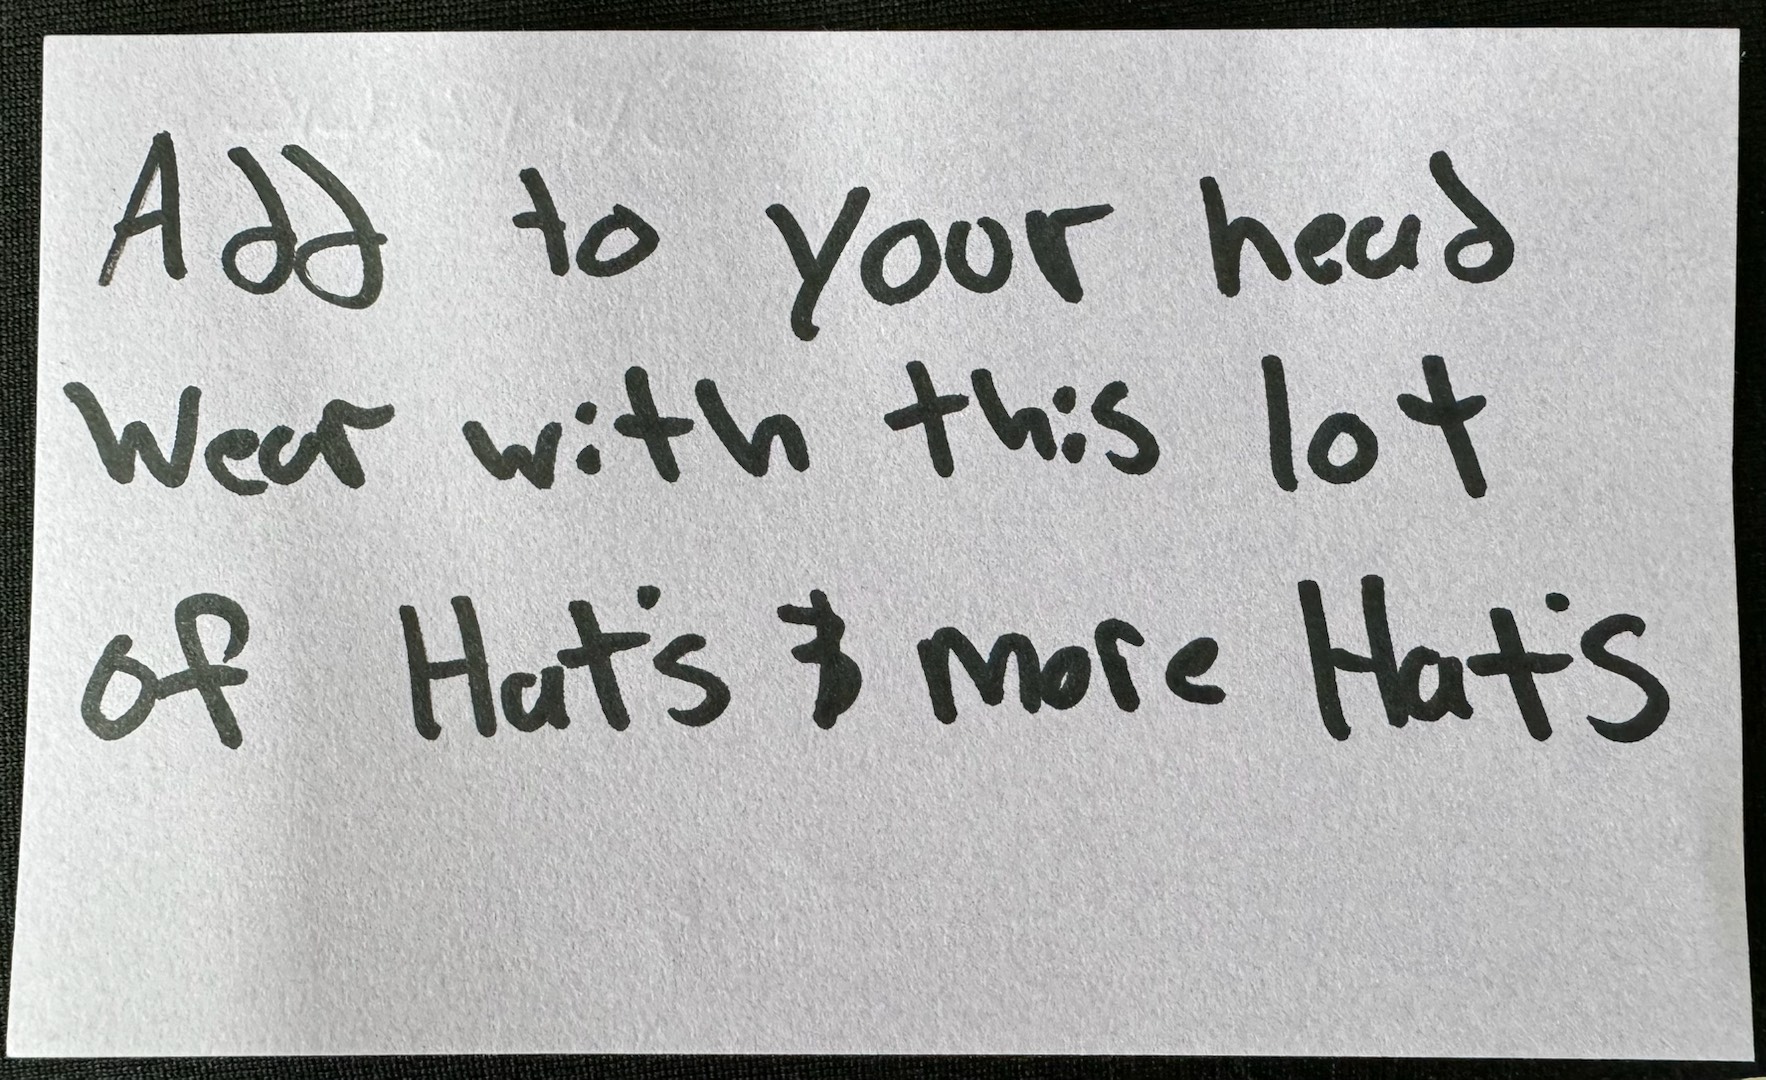 Add to your head
wear with this lot
of Hat's & more Hat's